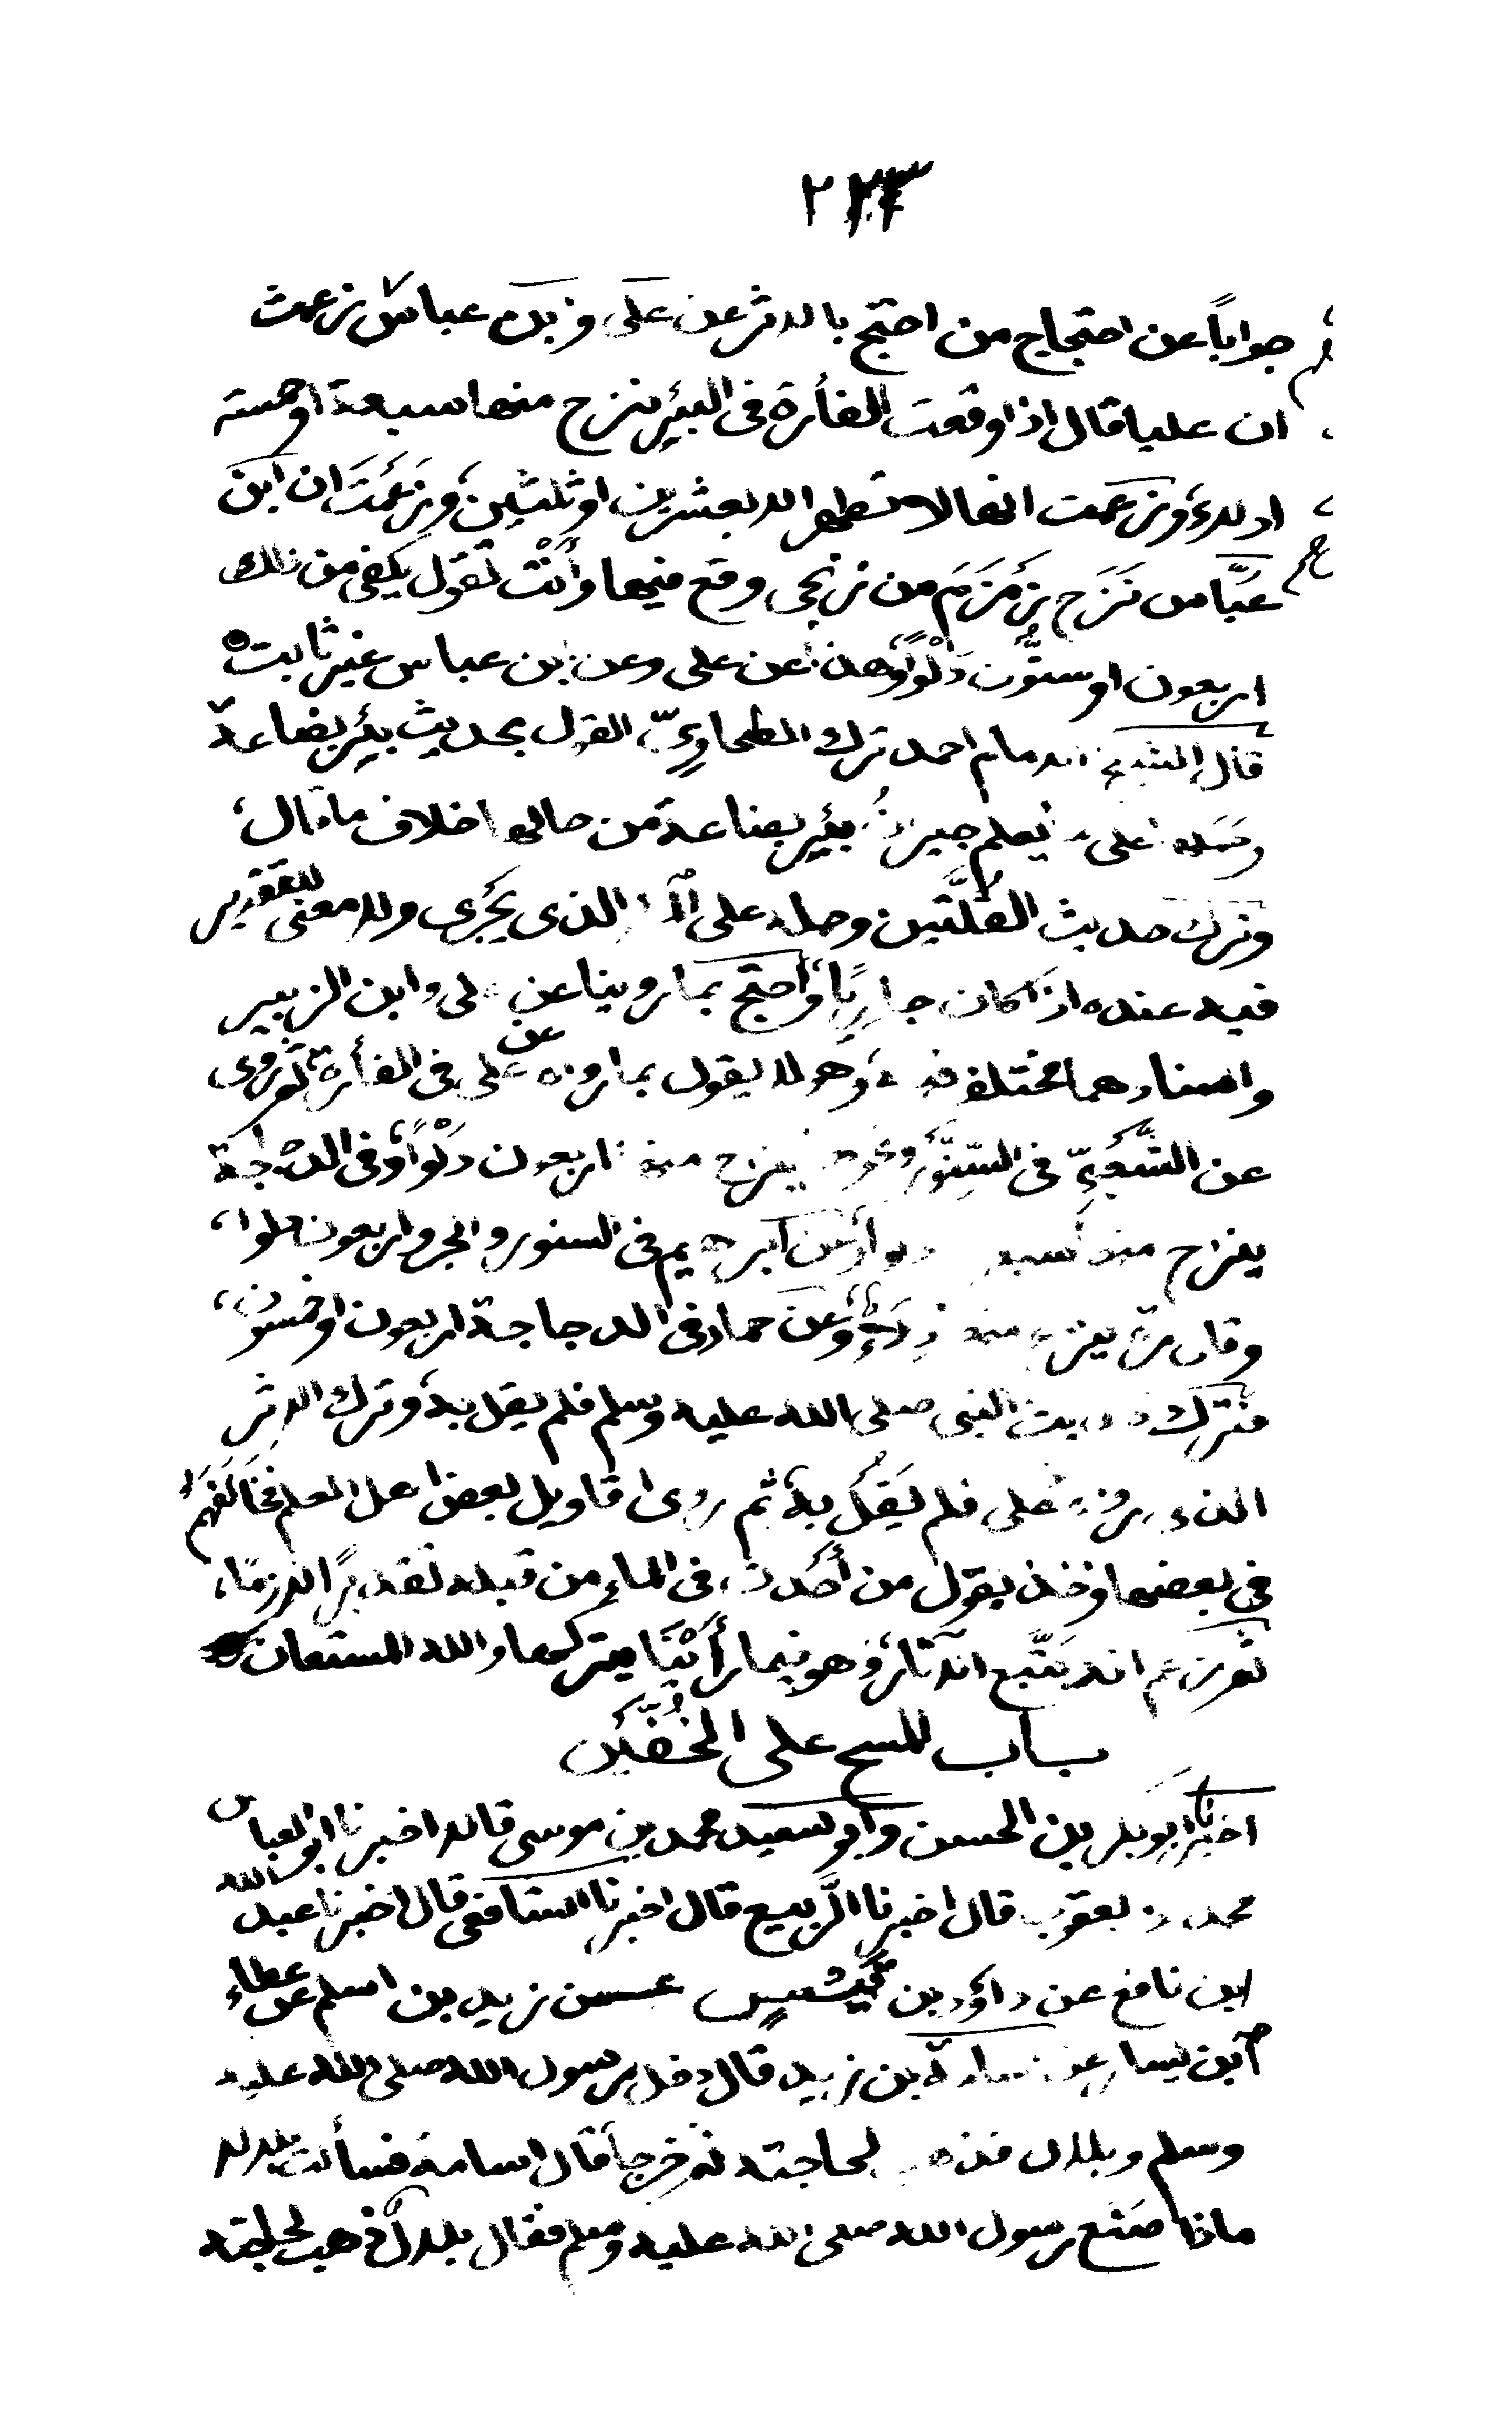 ٢٢٣
جواباً عن احتجاج من احتج بالاثر عن على وابن عباس زعمت
ان عليا قال اذا وقعت الفأرة فى البئر ينزح منها سبعة او خمسة
ادلاء وزعمت انها لا تطهر الا بعشرين او ثلثين، وزَعَمْتَ ان ابن
عبَّاس نَزَح زَمْزَمَ من زنجى وقع فيها وأنْتَ تقول يكفى من ذلك
اربعون او ستُّون دَلْوًا وهذا عن على وعن ابن عباس غير ثابت
قال الشيخ الامام احمد ترك الطحاوىّ القول بحديث بئر بضاعة
على يعلم بئر بضاعة من حالها خلاف ما قال،
وترك حديث القُلَّتَين وحمله على الماء الذى يَجْرى ولا معنى للتقدير
فيه عنده اذا كان جاريًا، واحتج بما روينا عن على وابن الزبير
واسنادهما مختلف فيه، وهو لا يقول بما رواه عن على فى الفأرة ثم روى
عن الشَّعْبىّ فى السِّنَّور ونحوه ينزح منها اربعون دَلْوًا، وفى الدجاجة
ينزح منها سبعون دلوا وعن ابرهيم فى السنور والجرذ اربعون دلوا،
وقال مرة ينزح منها دلاء، وعن حماد فى الدجاجة اربعون او خمسون،
فترك حديث النبى صلى الله عليه وسلم فلم يقل به، وترك الاثر
الذى رواه عن على فلم يَقُلْ به، ثم روى اقاويل بعض اهل العلم فخَالَفَهُمْ
في بعضها وخذ بقول من أحدث فى الماء من قبله تقديرًا لازمًا،
ثم زعم انه يتَّبع الآثار، وهو فيما رأيْنَا يتركها والله المستعان
باب المسح على الخُفَّيْن
اخبرنا ابو بكر بن الحسن وابو سعيد محمد بن موسى قالا اخبرنا ابو العباس
محمد بن يعقوب قال اخبرنا الرَّبيع قال اخبرنا الشافعى قال اخبرنا عبد الله
ابن نافع عن داؤد بن قَيْس عن زيد بن اسلم عن عطاء
ابن يسار عن اسامة بن زيد قال دخل رسول الله صلى الله عليه
وسلم وبلال فذهب لحاجته ثم خرجا قال اسامة فسألت بلالا
ماذا صَنَع رسول الله صلى الله عليه وسلم فقال بلال ذهب لحاجته